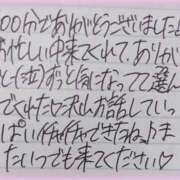 00分でありがとうございました♪
お忙しい中来てくれて、ありがと
(泣)ずっと気になってて選ん
でくれた♡沢山お話していっ
ぱいイチャイチャできたね♪ま
たいつでも来てください♡